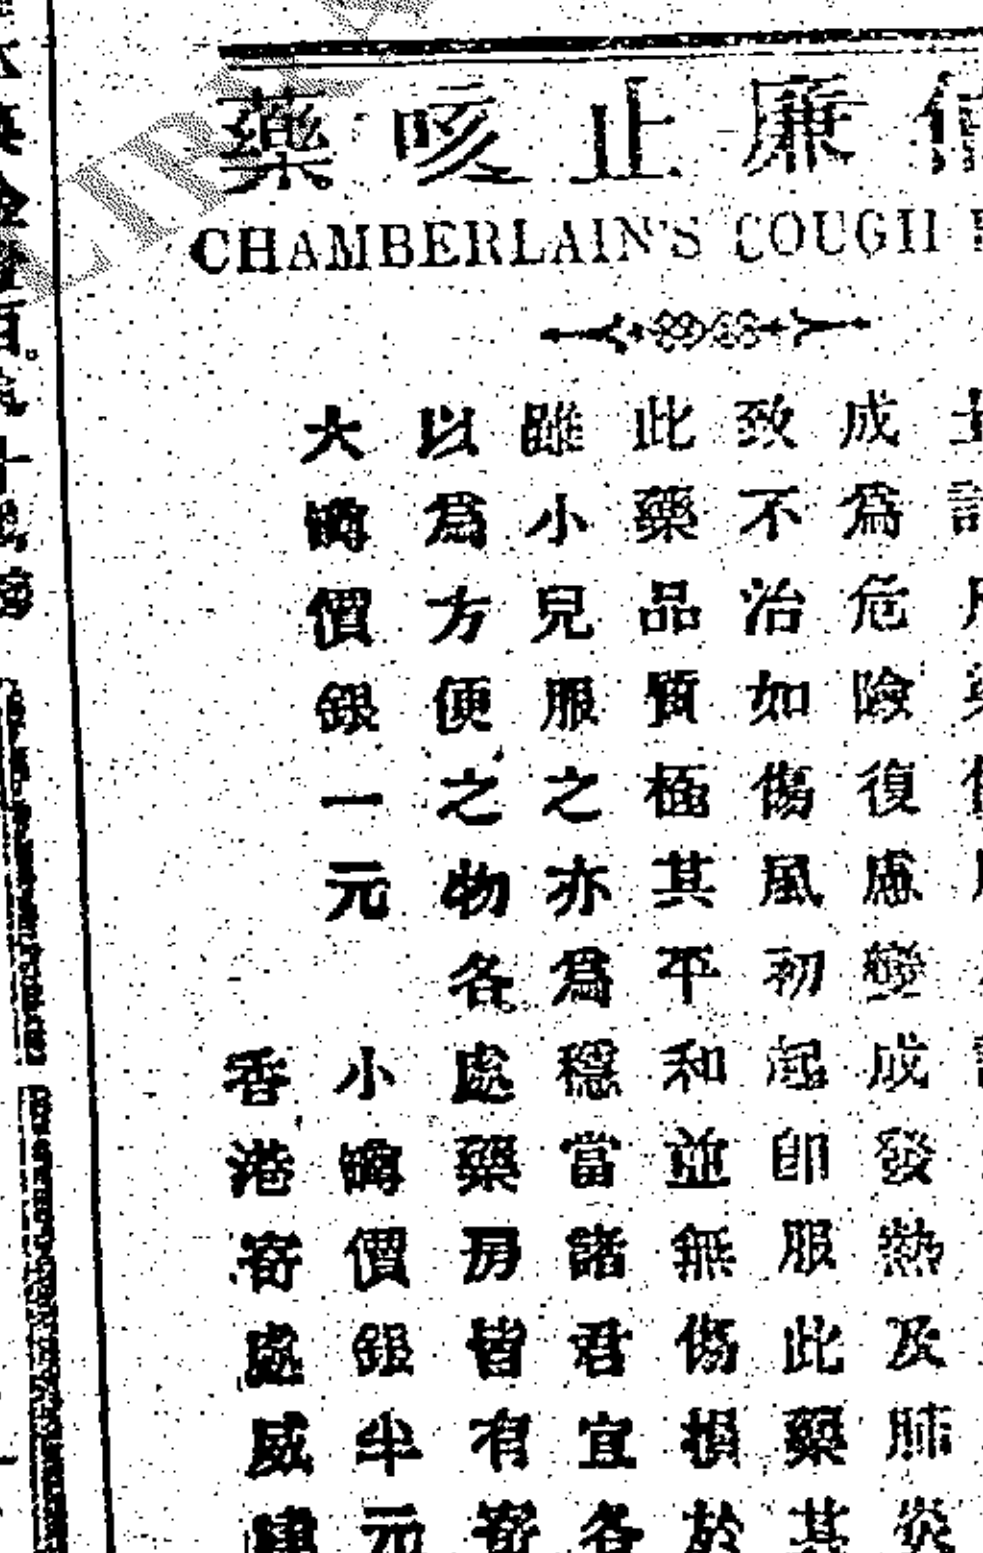 廉止咳藥
CHAMBERLAIN'S COUGH
成爲危險復慮變成發熱及肺炎
致不治如傷風初起即服此藥其
此藥品質極其平和並無傷損於
雖小兒服之亦爲穩當諸君宜各
以爲方便之物各處藥房皆有寄
大樽價銀一元 小樽價銀半元
香港寄處威建